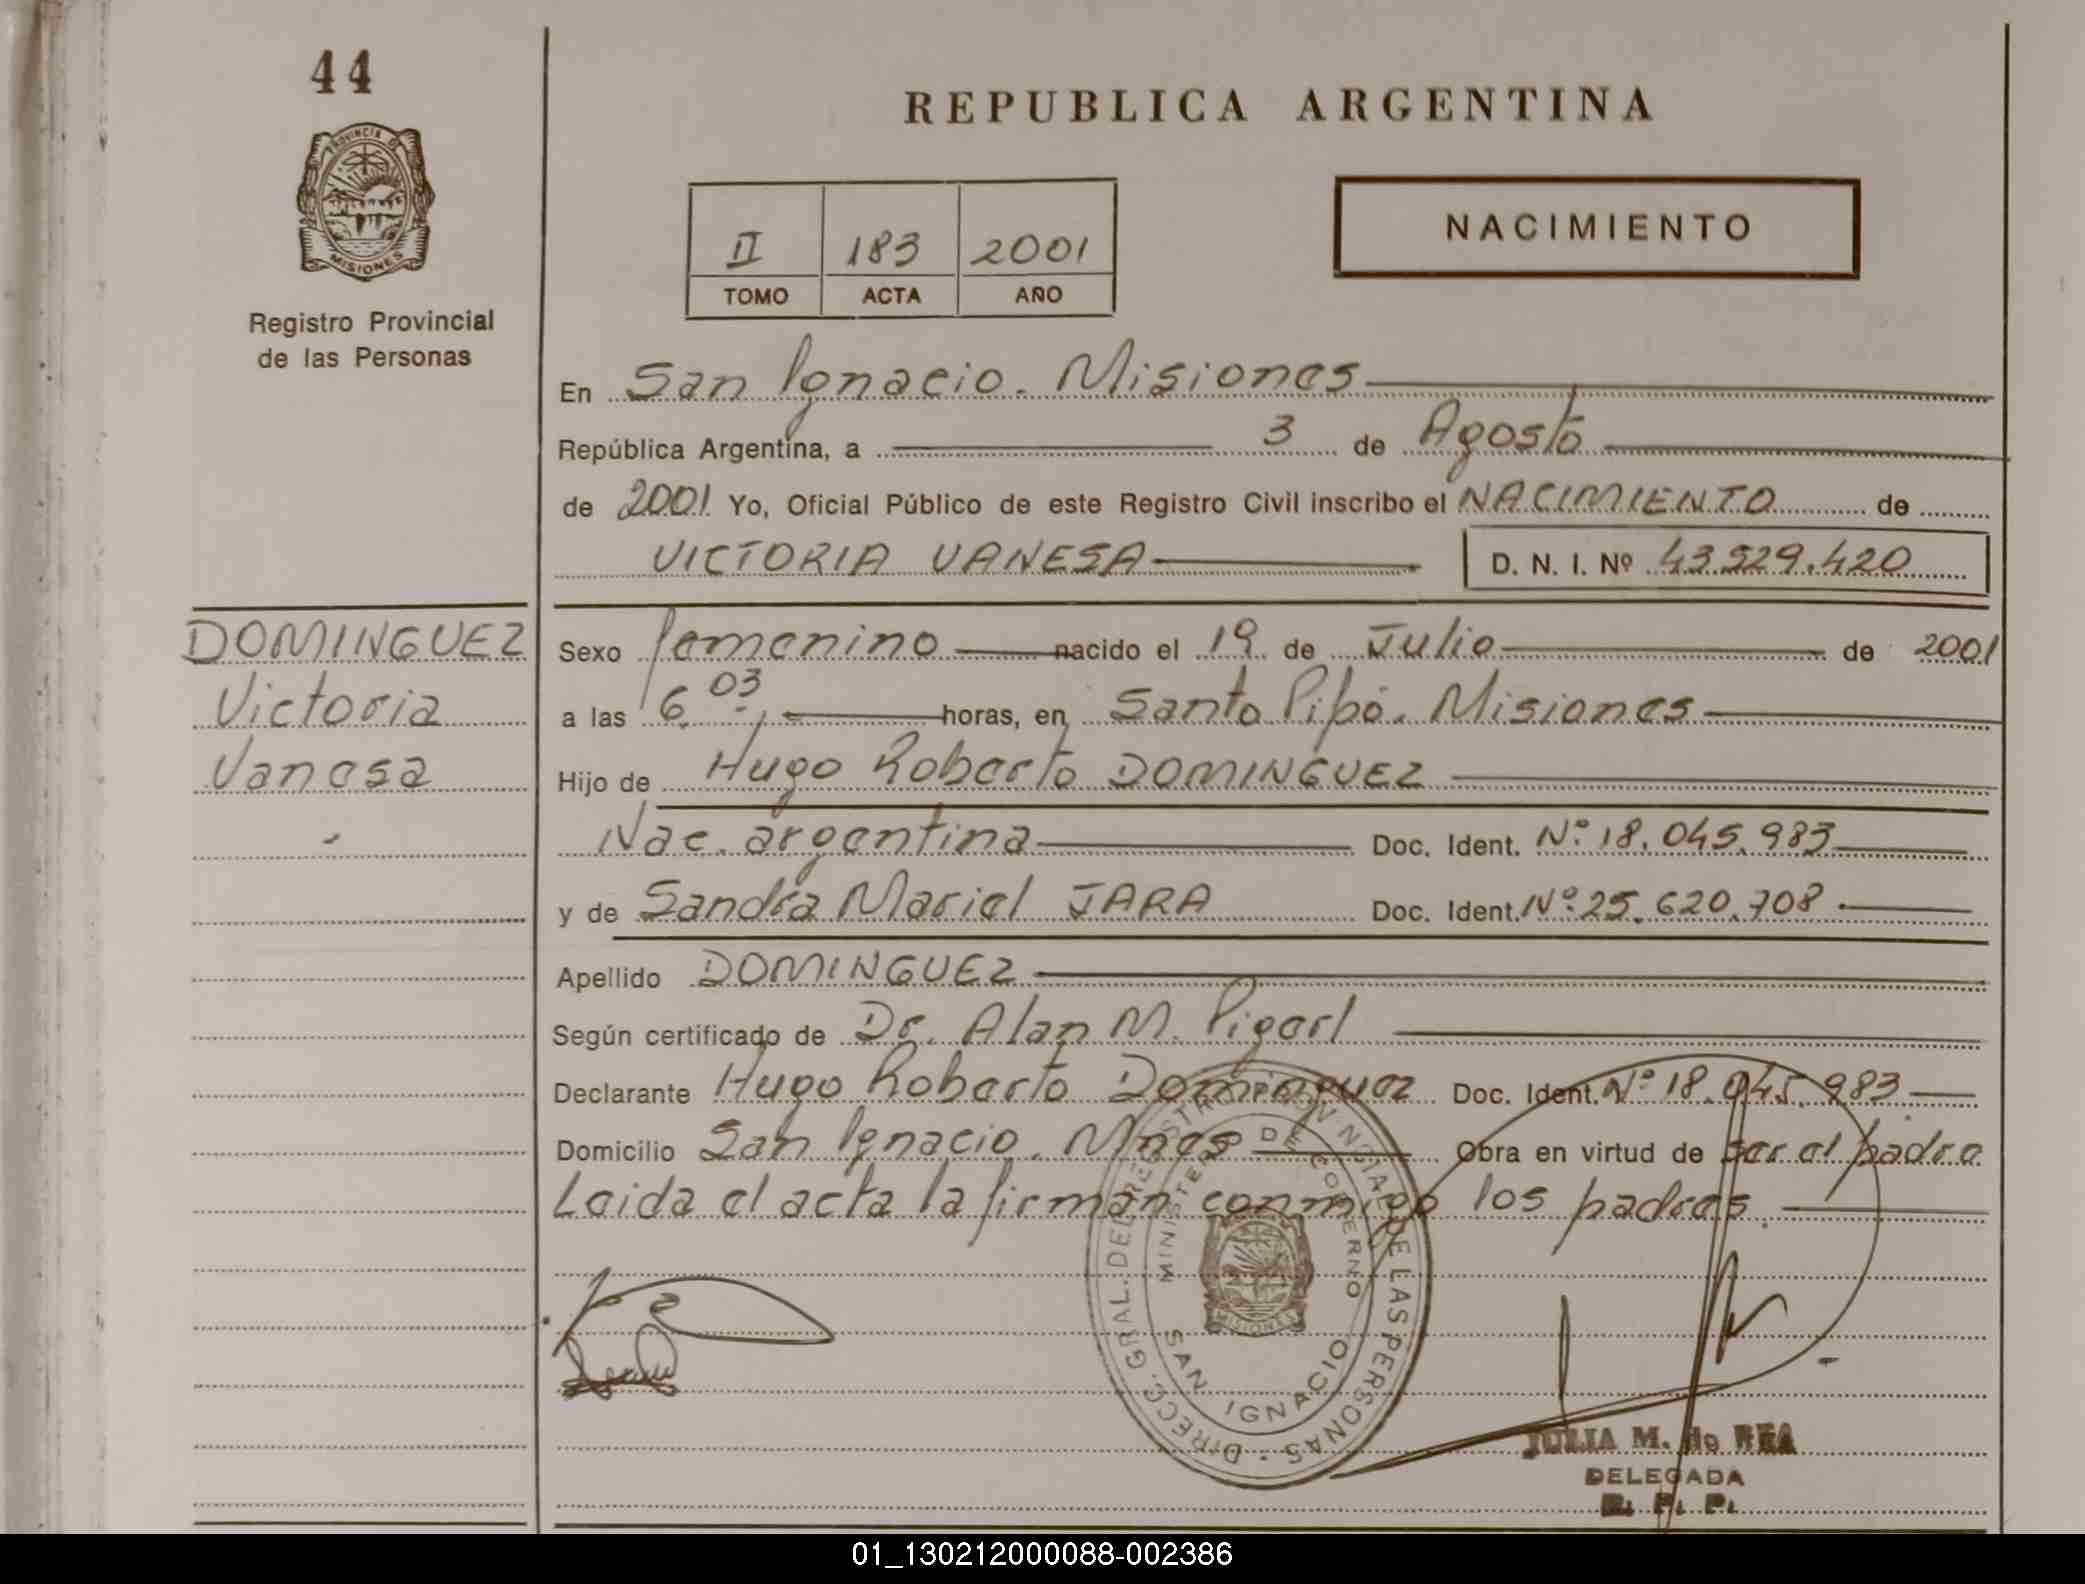 44
REPUBLICA ARGENTINA
PROVINCIA DE
MISIONES
Registro Provincial
de las Personas
NACIMIENTO
II 183 2001
TOMO ACTA AÑO
En San Ignacio. Misiones
República Argentina, a 3 de Agosto
de 2001 Yo, Oficial Público de este Registro Civil inscribo el NACIMIENTO de
VICTORIA VANESA D. N. I. Nº 43.529.420
DOMINGUEZ
Victoria
Vanesa
Sexo femenino nacido el 19 de Julio de 2001
a las 6 03 horas, en Santo Pipó. Misiones
Hijo de Hugo Roberto DOMINGUEZ
Nac. argentina Doc. Ident. Nº 18.045.983
y de Sandra Mariel JARA Doc. Ident. Nº 25.620.708
Apellido DOMINGUEZ
Según certificado de Dr. Alan M.
Declarante Hugo Roberto Dominguez Doc. Ident. Nº 18.045.983
Domicilio San Ignacio. Mnes Obra en virtud de ser el padre
Leida el acta la firman conmigo los padres.
DIRECC. GRAL. DEL REGISTRO PROVINCIAL DE LAS PERSONAS
MINISTERIO DE GOBIERNO
MISIONES
SAN IGNACIO
JULIA M. de REA
DELEGADA
R. P. P.
01_130212000088-002386